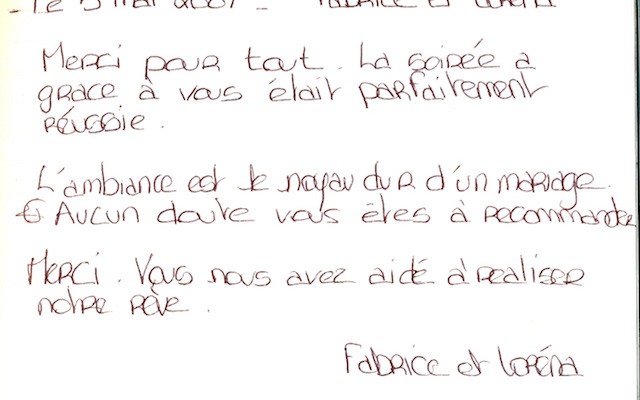 Merci pour tout. La soirée a
grace à vous était parfaitement
réussie.
L'ambiance est le noyau dur d'un mariage.
Aucun doute vous êtes à recommander
Merci. Vous nous avez aidé à realiser
notre rêve.
Fabrice et Loréna